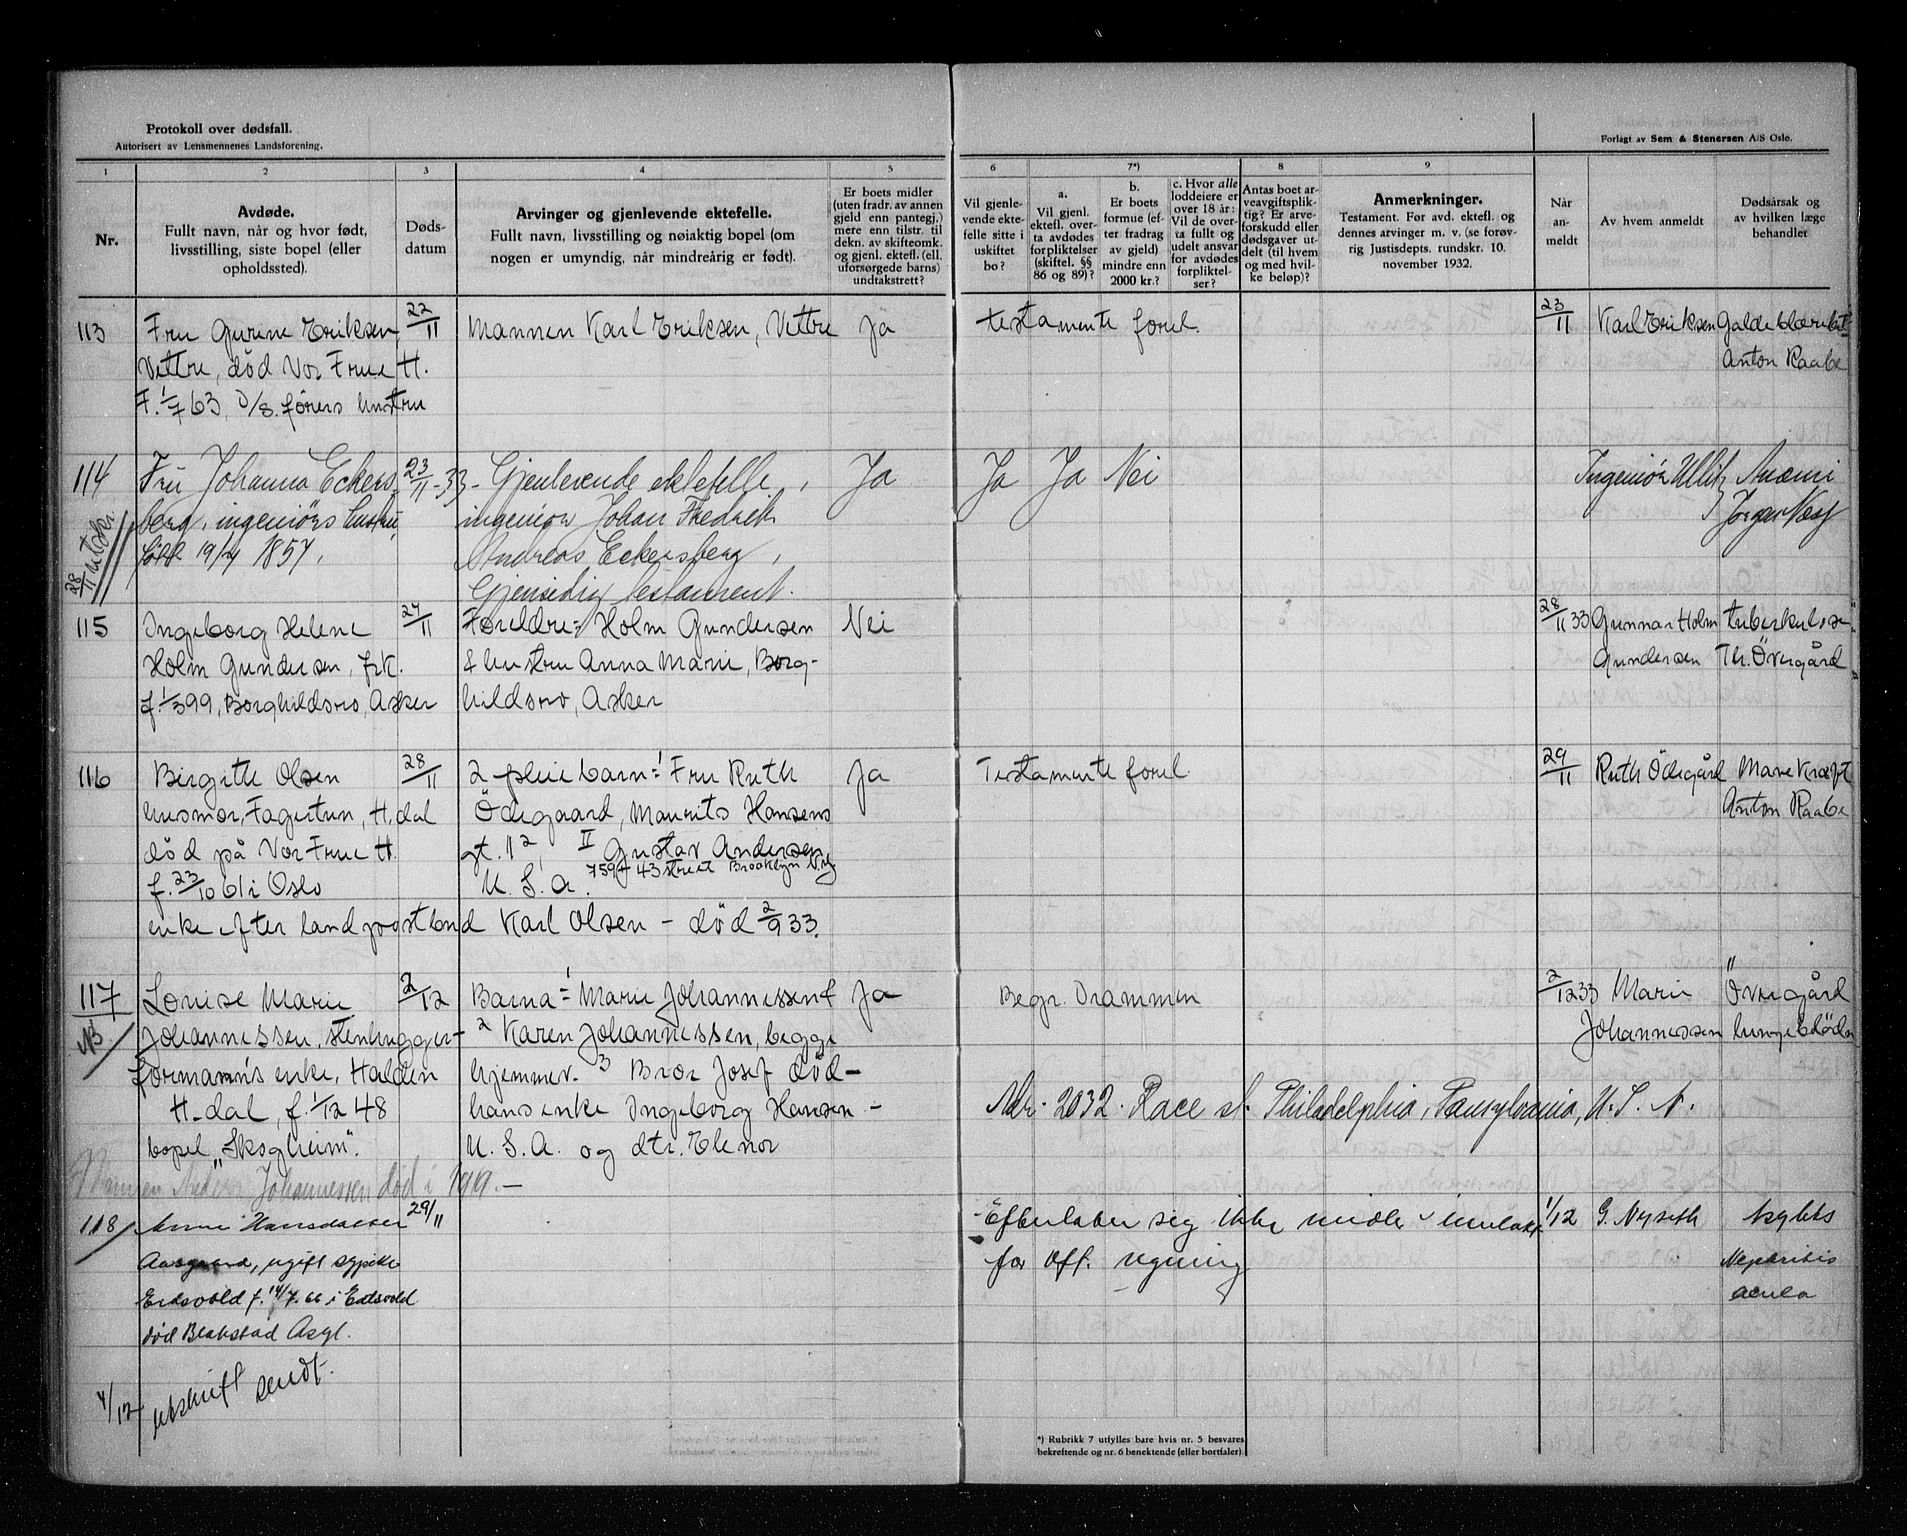 Protokoll over dødsfall.
Autorisert av Lensmennenes Landsforening.
Forlagt av Sem & Stenersen A/S Oslo.
1
Nr.
2
Avdøde.
Fullt navn, når og hvor født,
livsstilling, siste bopel (eller
opholdssted).
3
Døds-
datum
4
Arvinger og gjenlevende ektefelle.
Fullt navn, livsstilling og nøiaktig bopel (om
nogen er umyndig, når mindreårig er født).
5
Er boets midler
(uten fradr. av annen
gjeld enn pantegj.)
mere enn tilstr. til
dekn. av skifteomk.
og gjenl. ektefl. (ell.
uforsørgede barns)
undtakstrett?
6
Vil gjenle-
vende ekte-
felle sitte i
uskiftet
bo?
7*)
a.
Vil gjenl.
ektefl. over-
ta avdødes
forpliktelser
(skiftel. §§
86 og 89)?
b.
Er boets
formue (ef-
ter fradrag
av gjeld)
mindre enn
2000 kr.?
c. Hvor alle
loddeiere er
over 18 år:
Vil de over-
ta fullt og
udelt ansvar
for avdødes
forpliktel-
ser?
8
Antas boet ar-
veavgiftsplik-
tig? Er arve-
forskudd eller
dødsgaver ut-
delt (til hvem
og med hvil-
ke beløp)?
9
Anmerkninger.
Testament. Før avd. ektefl. og
dennes arvinger m. v. (se forøv-
rig Justisdepts. rundskr. 10.
november 1932.
Når
an-
meldt
Av hvem anmeldt
Dødsårsak og
av hvilken læge
behandlet
113 Fru Gurine Eriksen, 22/11 Mannen Karl Eriksen, Vettre Ja Testamente forel. 23/11 Karl Eriksen Galdeblærebet.
Vettre, död Vor Frue H. Anton Raabe
F. 1/7 63, D/S. förers hustru
114 Fru Johanna Eckers- 23/11-33 Gjenlevende ektefelle, Ja Ja Ja Nei Ingeniör Ullitz Anæmi
berg, ingeniörs hustru, ingeniör Johan Fredrik Jörgen Næss
28/11 utskr. född 19/4 1857. Andreas Eckersberg,
Gjensidig testament.
115 Ingeborg Helene 27/11 Foreldre: Holm Gundersen Nei 28/11 33 Gunnar Holm tuberkulose
Holm Gundersen, frk. & hustru Anna Marie, Borg- Gundersen Th. Övergård
f. 1/3 99, Borghildsro, Asker hildsro, Asker
116 Birgitte Olsen 28/11 2 pleiebarn: 1 Fru Ruth Ja Testamente forel. 29/11 Ruth Ödegård Mavekræft
husmor, Fagertun, H.dal Ödegaard, Maurits Hansens Anton Raabe
död på Vor Frue H. gt. 11 2, II Gustav Andersen
f. 23/10 61 i Oslo U. S. A. 759 - 43 street Brooklyn N.y
enke efter landpostbud Karl Olsen - död 2/9 33.
117 Louise Marie 2/12 Barna: 1 Marie Johannessen & Ja Begr. Drammen 2/12 33 Marie Övergård
NB Johannessen, stenhugger- 2 Karen Johannessen, begge Johannessen lungeblödn
formann's enke, Halden hjemmev. 3 Bror Josef död-
H-dal, f. 1/12 48 hans enke Ingeborg Hansen - Adr. 2032. Race st. Philadelphia, Pansylvania, U. S. A.
bopel "Skogheim". U. S. A. og dtr. Elenor
Mannen Anders Johannessen död i 1919.-
118 Anne Hansdatter 29/11 Efterlater sig ikke midler - innlagt 1/12 G. Nyseth Asylets
Aasgaard, ugift sypike for off. regning Nephritis
Eidsvold f. 14/7. 66 i Eidsvold acuta
död Blakstad Asyl.
4/12 utskrift sendt.
*) Rubrikk 7 utfylles bare hvis nr. 5 besvares
bekreftende og nr. 6 benektende (eller bortfaler).